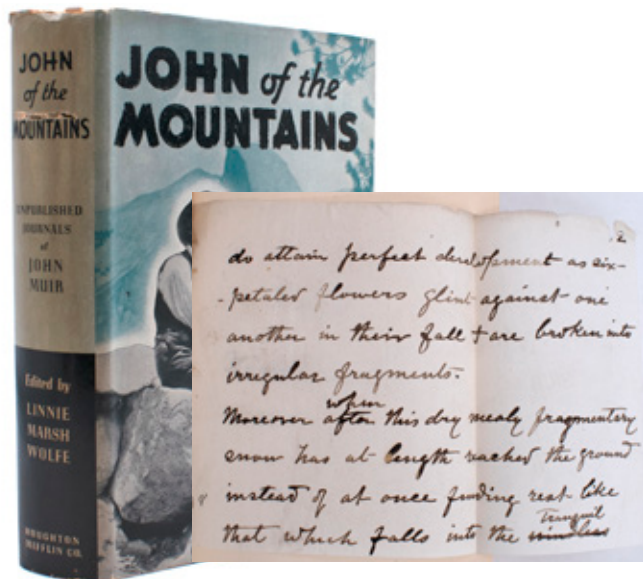 JOHN
of the
MOUNTAINS
UNPUBLISHED
JOURNALS
of
JOHN
MUIR
Edited by
LINNIE
MARSH
WOLFE
HOUGHTON
MIFFLIN CO.
JOHN of the
MOUNTAINS
2
do attain perfect development as six-
-petaled flowers glint against one
another in their fall + are broken into
irregular fragments.
when
Moreover after this dry mealy fragmentary
snow has at length reached the ground
instead of at once finding rest like
Tranquil
that which falls into the windless